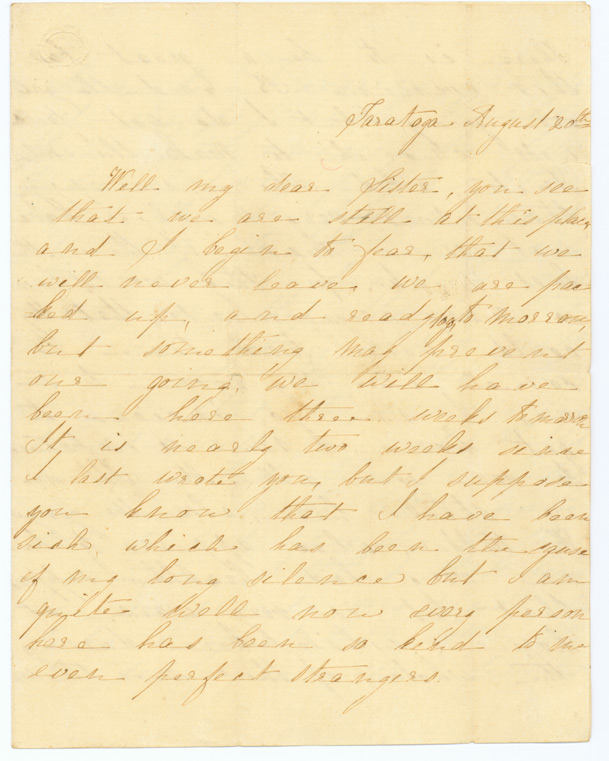 Saratoga August 20th
Well my dear Sister, you see
that we are still at this place
and I begin to fear, that we
will never leave, we are pac
ked up, and ready for to morrow,
but something may prevent
our going, we will have
been here three weeks to morrow
It is nearly two weeks since
I last wrote you, but I suppose
you know that I have been
sick, which has been the cause
of my long silence but I am
quite well now every person
here has been so kind to me
even perfect strangers.